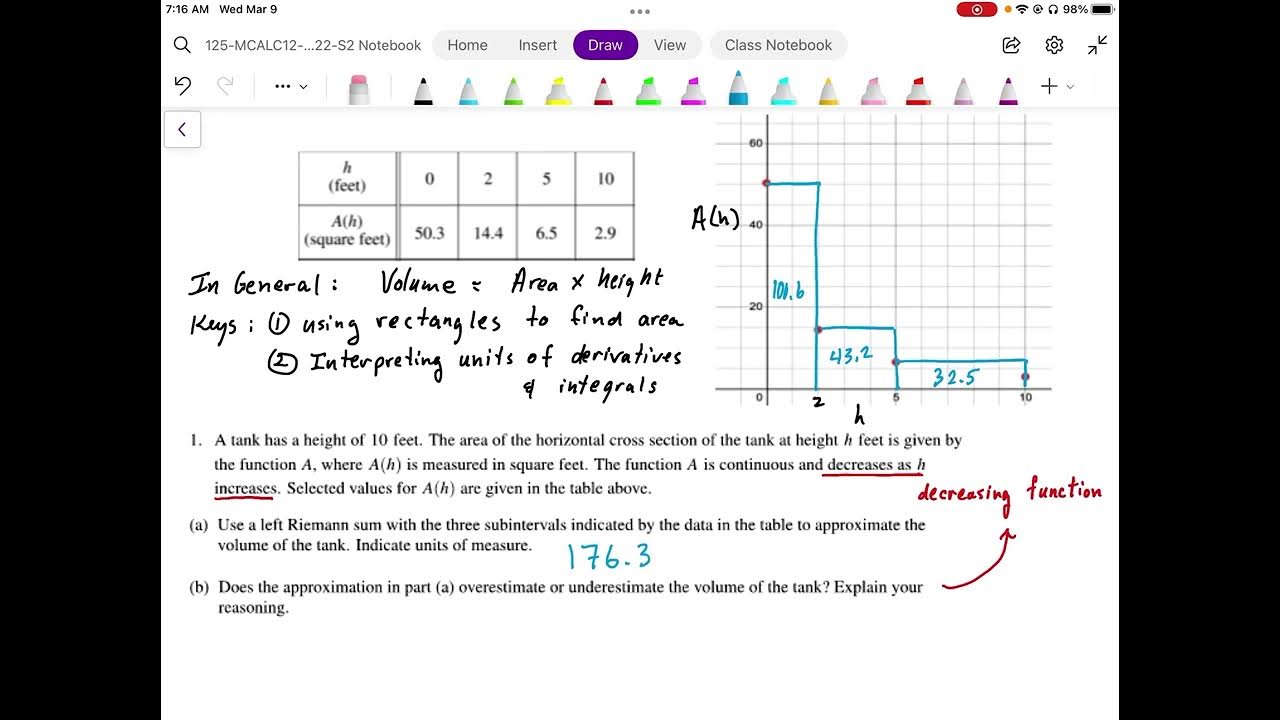 7:16 AM Wed Mar 9
98%
125-MCALC12-...22-S2 Notebook
Home
Insert
Draw
View
Class Notebook
h (feet) 0 2 5 10
A(h) (square feet) 50.3 14.4 6.5 2.9
In General: Volume = Area x height
Keys: ① using rectangles to find area
② Interpreting units of derivatives
& integrals
60
A(h) 40
20
0
2
5
10
h
100.6
43.2
32.5
1. A tank has a height of 10 feet. The area of the horizontal cross section of the tank at height h feet is given by
the function A, where A(h) is measured in square feet. The function A is continuous and decreases as h
increases. Selected values for A(h) are given in the table above.
decreasing function
(a) Use a left Riemann sum with the three subintervals indicated by the data in the table to approximate the
volume of the tank. Indicate units of measure.
176.3
(b) Does the approximation in part (a) overestimate or underestimate the volume of the tank? Explain your
reasoning.